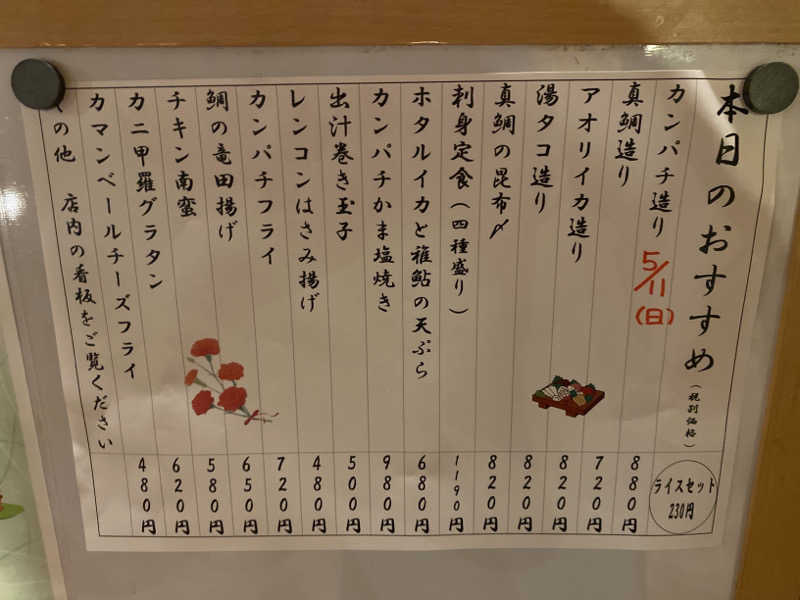 本日のおすすめ（税別価格）
5/11(日)
ライスセット
230円
カンパチ造り 880円
真鯛造り 720円
アオリイカ造り 820円
湯タコ造り 820円
真鯛の昆布〆 820円
刺身定食（四種盛り） 1190円
ホタルイカと稚鮎の天ぷら 680円
カンパチかま塩焼き 980円
出汁巻き玉子 500円
レンコンはさみ揚げ 480円
カンパチフライ 720円
鯛の竜田揚げ 650円
チキン南蛮 580円
カニ甲羅グラタン 620円
カマンベールチーズフライ 480円
の他 店内の看板をご覧ください